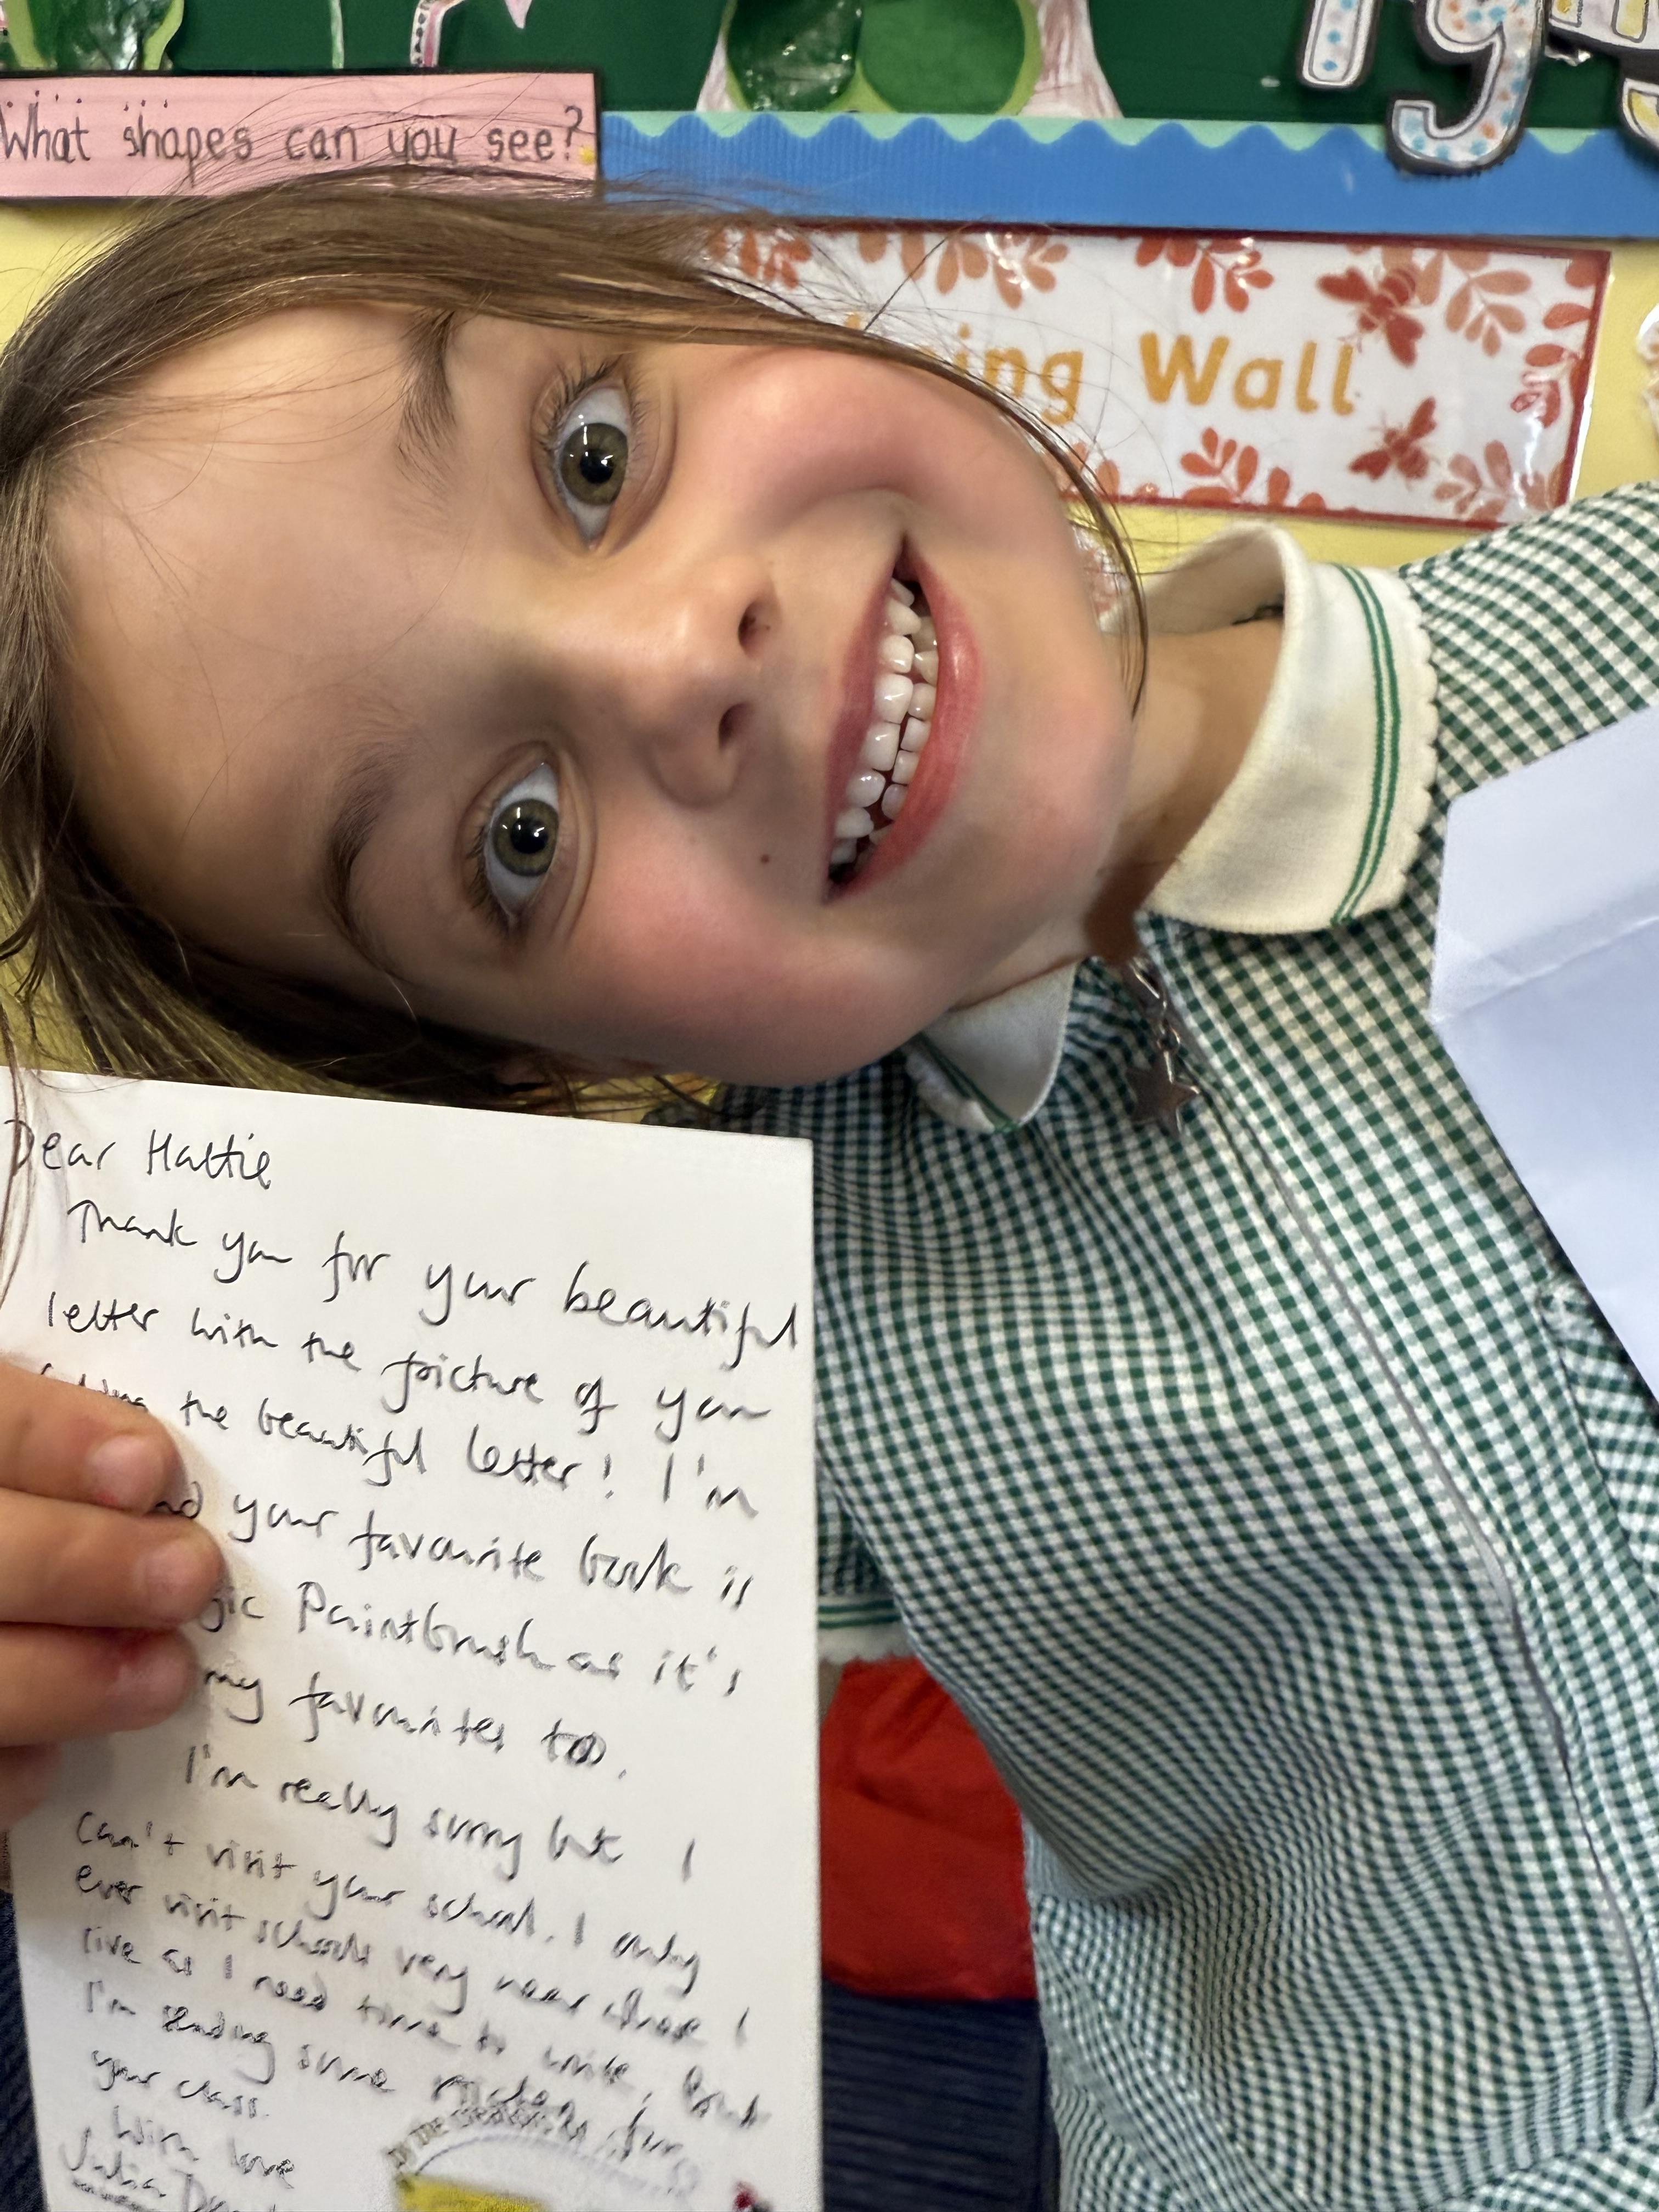 What shapes can you see?
ing Wall
Dear Hattie
Thank you for your beautiful
letter with the picture of you
the beautiful letter! I'm
your favourite book is
gic Paintbrush as it's
my favourites too.
I'm really sorry but I
can't visit your school. I only
ever visit schools very near where I
live as I need time to write, but
I'm sending some for
your class.
With love
Julia